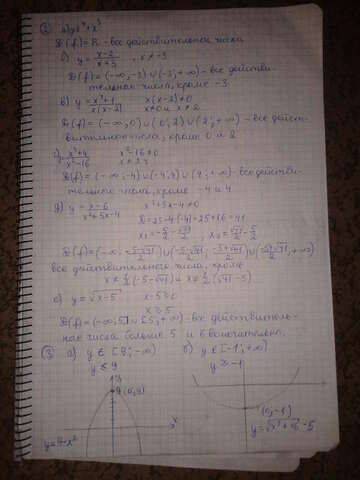 ② а) y=x⁴+x³
D(f)=R - все действительные числа
б) y=(x-2)/(x+3) , x≠-3
D(f)=(-∞;-3)∪(-3;+∞) - все действи-
тельные числа, кроме -3
в) y=(x³+1)/(x(x-2)) x(x-2)≠0
x≠0 и x≠2
D(f)=(-∞;0)∪(0;2)∪(2;+∞) - все дейст-
вительные числа, кроме 0 и 2
г) (x³+4)/(x²-16) x²-16≠0
x≠±4
D(f)=(-∞;-4)∪(-4;4)∪(4;+∞) - все действи-
тельные числа, кроме -4 и 4
д) y=(x-6)/(x²+5x-4) x²+5x-4≠0
D=25-4·(-4)=25+16=41
x₁=(-5-√41)/2 , x₂=(√41-5)/2
D(f)=(-∞; (-5-√41)/2)∪((-5-√41)/2; (-5+√41)/2)∪((-5+√41)/2; +∞)
все действительные числа, кроме
x≠½(-5-√41) и x≠½(√41-5)
е) y=√(x-5) x-5≥0
x≥5
D(f)=(-∞;5]∪[5;+∞) - все действитель-
ные числа больше 5 и 5 включительно.
③ а) y∈[9;-∞) б) y∈[-1;+∞)
y≤9 y≥-1
y
9 (0;9)
x
(0;-1)
y=9-x² y=√(x²+16)-5